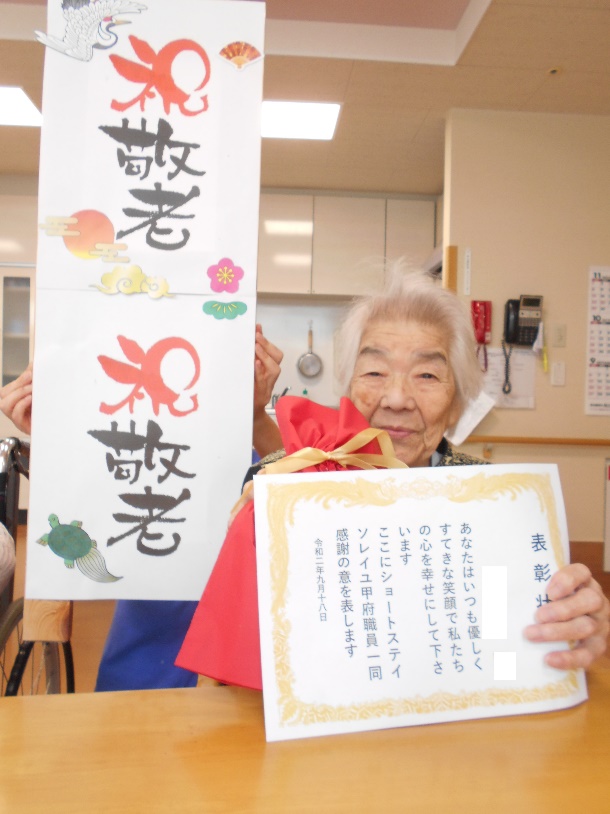 祝
敬老
祝
敬老
表彰状
あなたはいつも優しく
すてきな笑顔で私たち
の心を幸せにして下さ
います
ここにショートステイ
ソレイユ甲府職員一同
感謝の意を表します
令和二年九月十八日
11
10
9